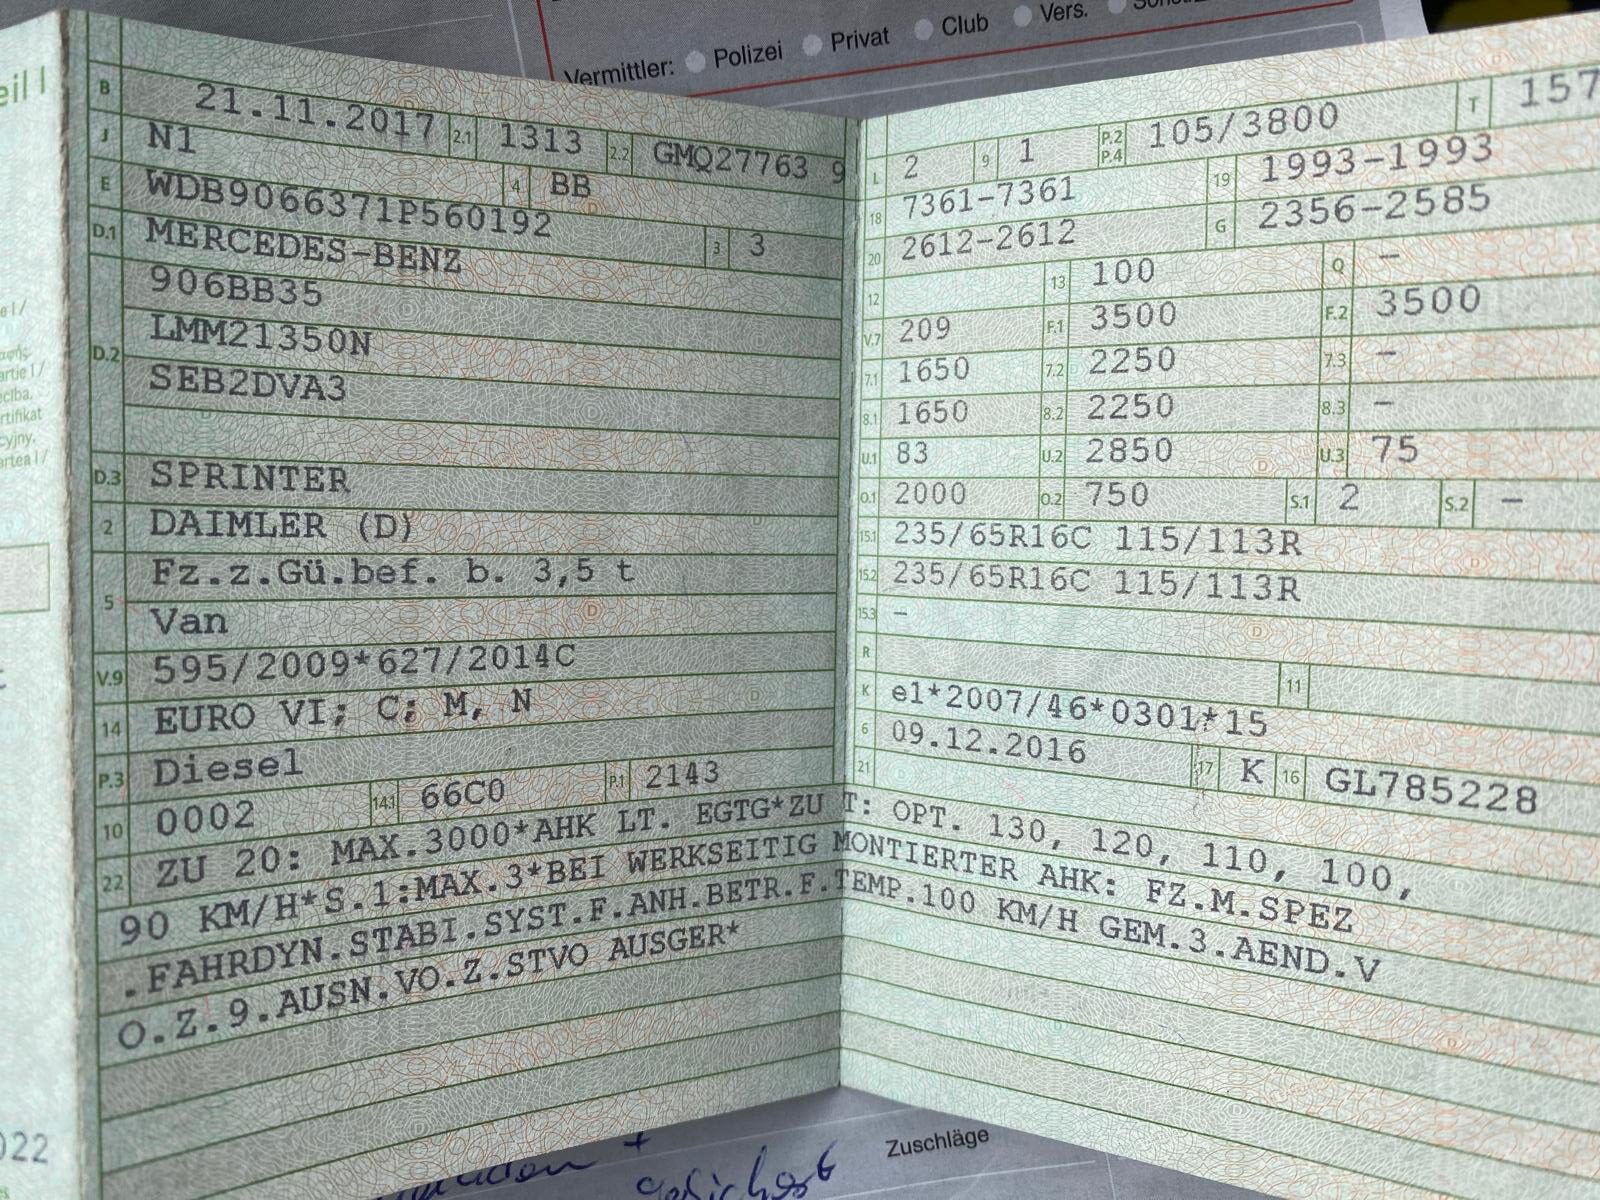 Vermittler: Polizei Privat Club Vers.
eil I
B 21.11.2017 2.1 1313 2.2 GMQ27763 9
J N1 4 BB
E WDB9066371P560192 3 3
D.1 MERCEDES-BENZ
D.2 906BB35
LMM21350N
SEB2DVA3
D.3 SPRINTER
2 DAIMLER (D)
5 Fz.z.Gü.bef. b. 3,5 t
Van
V.9 595/2009*627/2014C
14 EURO VI; C; M, N
P.3 Diesel
10 0002 14.1 66C0 P.1 2143
L 2 9 1 P.2 P.4 105/3800 T 157
18 7361-7361 19 1993-1993
20 2612-2612 G 2356-2585
12 13 100 Q -
V.7 209 F.1 3500 F.2 3500
7.1 1650 7.2 2250 7.3 -
8.1 1650 8.2 2250 8.3 -
U.1 83 U.2 2850 U.3 75
O.1 2000 O.2 750 S.1 2 S.2 -
15.1 235/65R16C 115/113R
15.2 235/65R16C 115/113R
15.3 -
R 11
K e1*2007/46*0301*15
6 09.12.2016 17 K 16 GL785228
21
22 ZU 20: MAX.3000*AHK LT. EGTG*ZU T: OPT. 130, 120, 110, 100,
90 KM/H*S.1:MAX.3*BEI WERKSEITIG MONTIERTER AHK: FZ.M.SPEZ
.FAHRDYN.STABI.SYST.F.ANH.BETR.F.TEMP.100 KM/H GEM.3.AEND.V
O.Z.9.AUSN.VO.Z.STVO AUSGER*
022
Zuschläge
gesichert